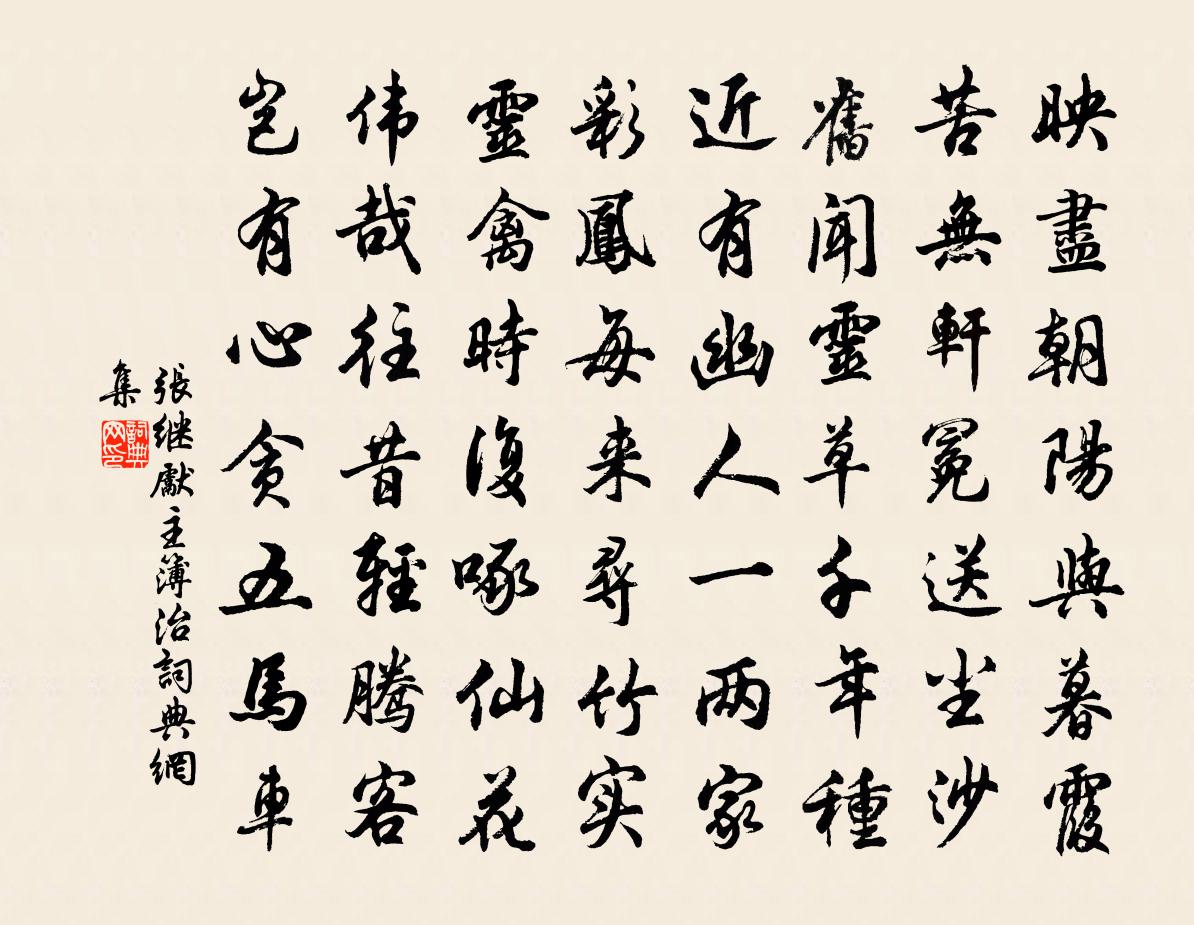 映盡朝陽與暮霞
苦無軒冕送尘沙
舊闻靈草千年種
近有幽人一两家
彩鳳每来尋竹实
靈禽時復啄仙花
伟哉往昔輕腾客
岂有心贪五馬車
張继獻主簿治詞典網
集
詞典网印